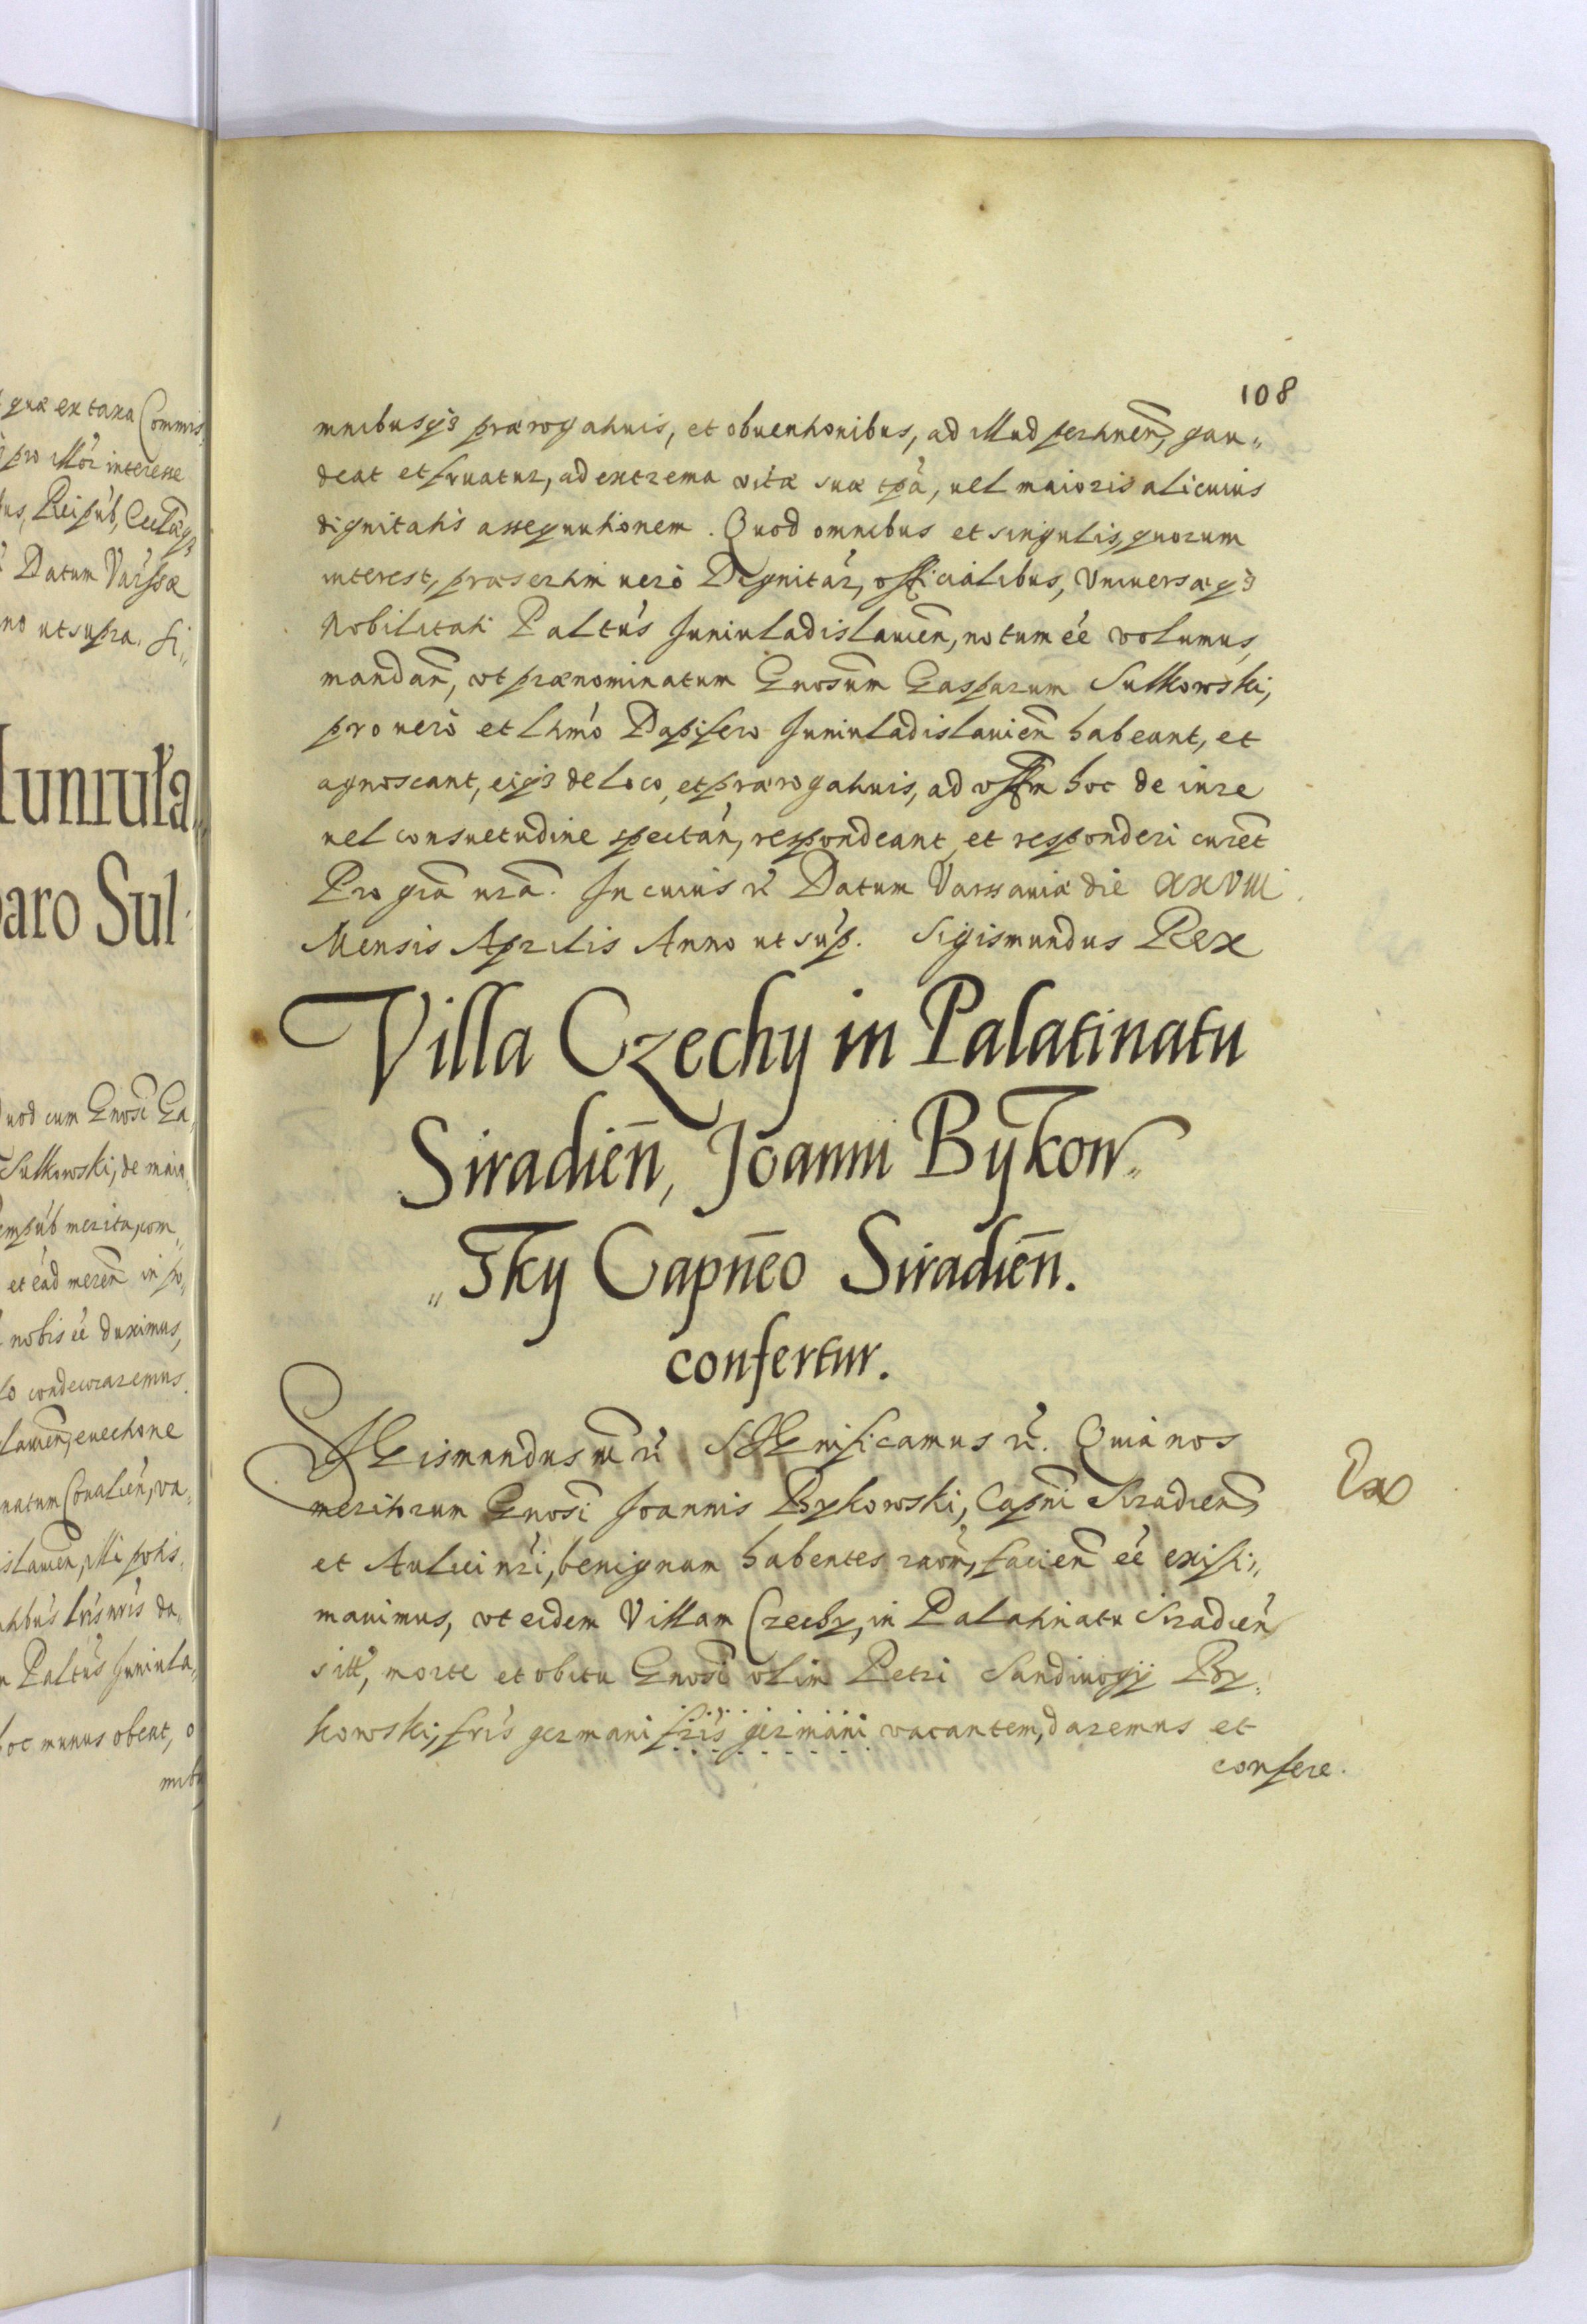 quæ ex taxa Commis
pro illor interesse
us, Reipub, Ecclæq3
Datum Varsæ
no ut supra. Si„
Iuniula„
paro Sul
uod cum Gnosi Ga„
Sulkowski, de maia„
empub merita, com„
et ead meren in po„
nobis ée duximus,
lo condecoraremus.
lauien, euectione
natum Coualien, va„
islauien, illi potis„
ntibus lris nris da„
Paltus Iuniula„
oc munus obeat, o
mnibu
108
mnibusq3 prærogatiuis, et obuentionibus, ad illud pertinen, gau„
deat et fruatur, ad extrema vitæ suæ tpa, uel maioris alicuius
dignitatis assequutionem. Quod omnibus et singulis, quorum
interest, præsertim uero Dignitar, officialibus, Vniuersæq3
Nobilitati Paltus Iuniuladislauien, notum ée volumus,
mandan, vt prænominatum Gnosum Gasparum Sulkowski,
pro uero et ltimo Dapifero Iuniuladislauien habeant, et
agnoscant, eiq3 de loco, et prærogatiuis, ad offm hoc de iure
uel consuetudine spectan, respondeant et responderi curent
Pro gra nra. In cuius rei Datum Varssauiæ die XXVIII
Mensis Aprilis Anno ut sup. Sigismundus Rex
Villa Czechy in Palatinatu
Siradien, Joanni Bykow„
„sky Capneo Siradien.
confertur.
SIGismundus III rc SIGnificamus rc. Quia nos
meritorum Gnosi Joannis Bykowski, Capni Siradien,
et Aulici nri, benignam habentes raom, facien ée existi„
mauimus, vt eidem Villam Czechy, in Palatinatu Siradien
sitt, morte et obitu Gnosi olim Petri Sandiuogij By„
kowski, fris germani fris germani vacantem, daremus et
confere.
Ex